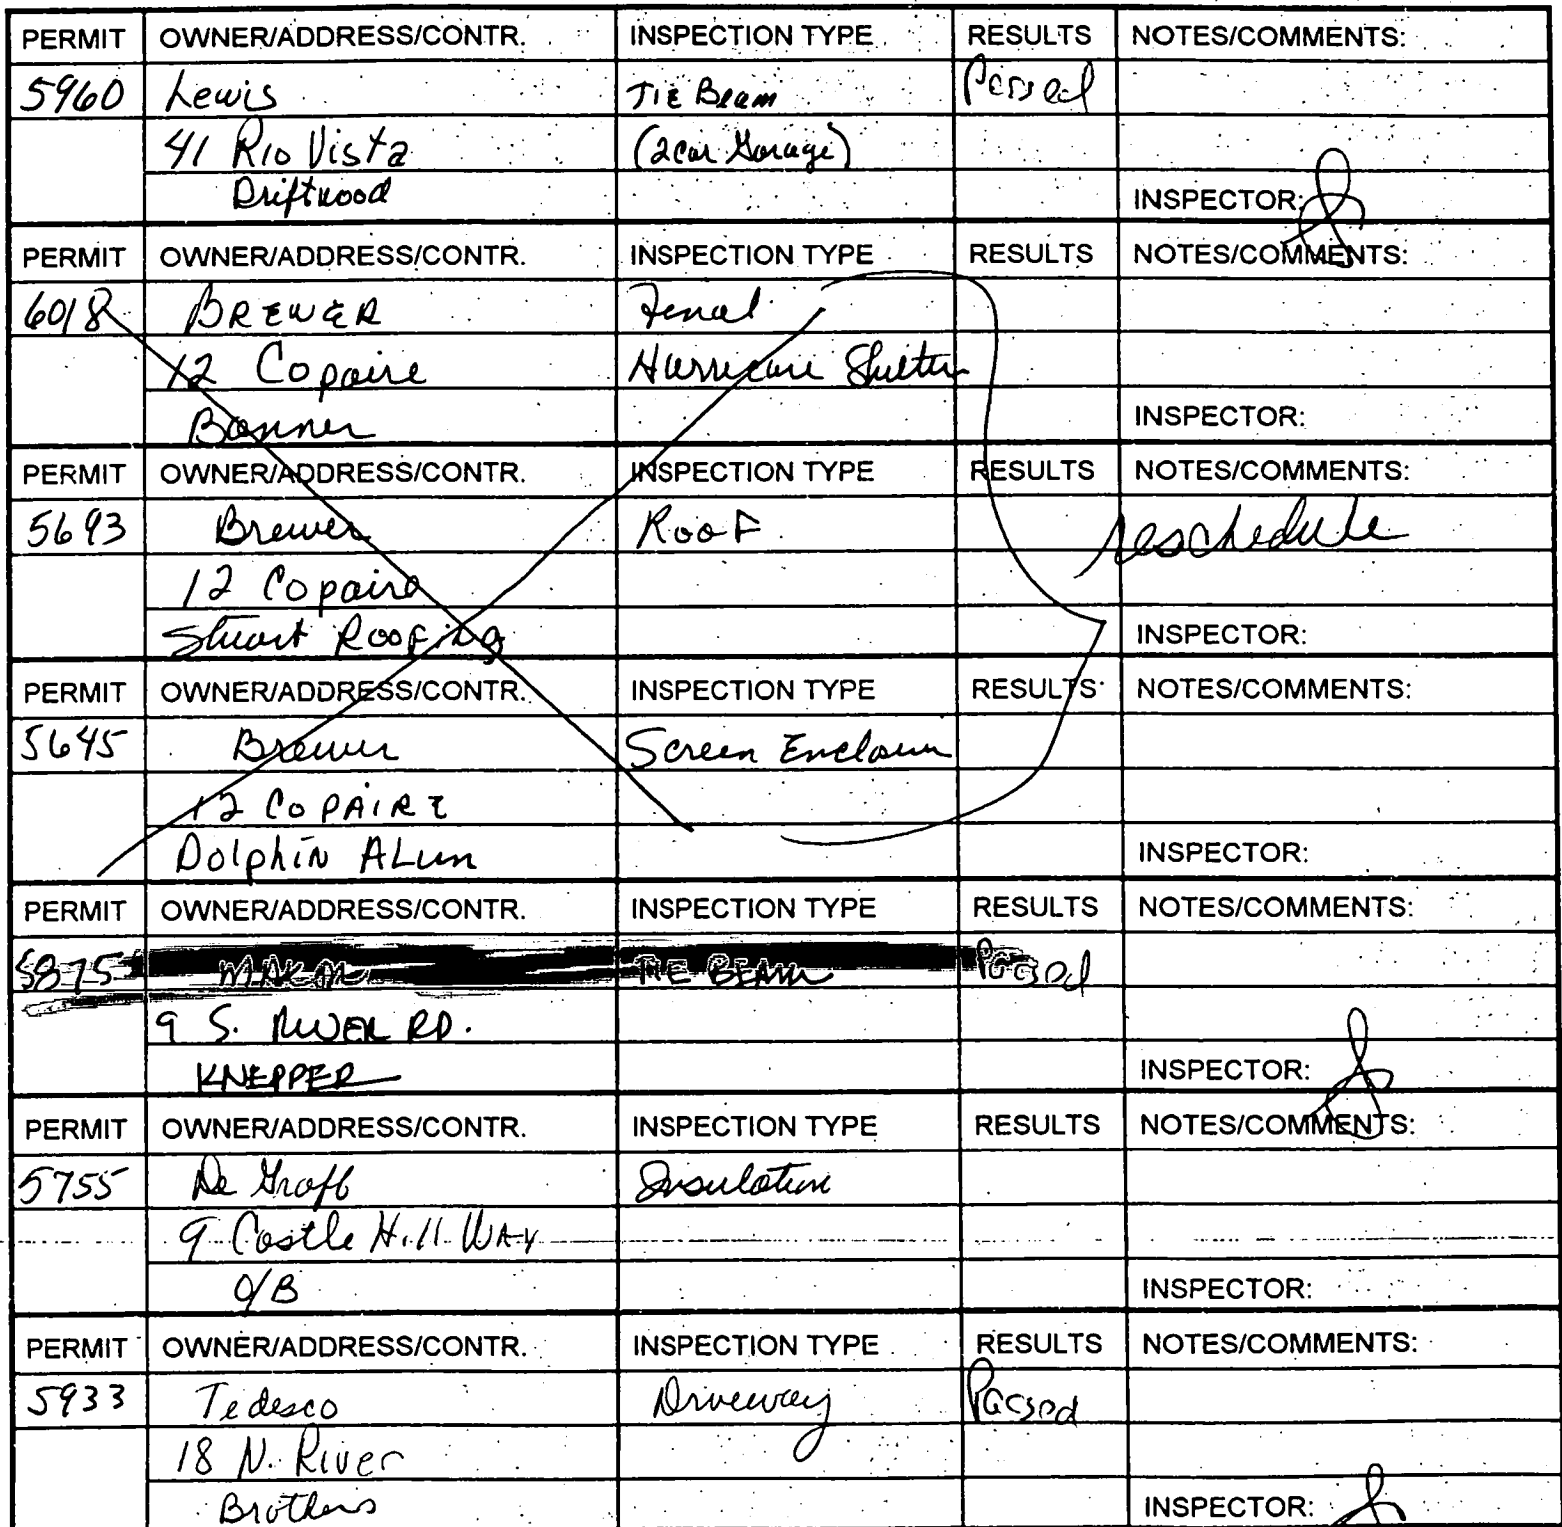 PERMIT OWNER/ADDRESS/CONTR. INSPECTION TYPE RESULTS NOTES/COMMENTS:
5960 Lewis TIE Beam Passed
41 Rio Vista (2 car Garage)
Driftwood INSPECTOR:
PERMIT OWNER/ADDRESS/CONTR. INSPECTION TYPE RESULTS NOTES/COMMENTS:
6018 BREWER Final
12 Copaire Hurricane Shutter
Banner INSPECTOR:
PERMIT OWNER/ADDRESS/CONTR. INSPECTION TYPE RESULTS NOTES/COMMENTS:
5693 Brewer Roof reschedule
12 Copaire
Stuart Roofing INSPECTOR:
PERMIT OWNER/ADDRESS/CONTR. INSPECTION TYPE RESULTS NOTES/COMMENTS:
5645 Brewer Screen Enclosure
12 COPAIRE
Dolphin ALum INSPECTOR:
PERMIT OWNER/ADDRESS/CONTR. INSPECTION TYPE RESULTS NOTES/COMMENTS:
5875 TIE BEAM Passed
9 S. RIVER RD.
KNEPPER INSPECTOR:
PERMIT OWNER/ADDRESS/CONTR. INSPECTION TYPE RESULTS NOTES/COMMENTS:
5755 De Graff Insulation
9 Castle Hill WAY
O/B INSPECTOR:
PERMIT OWNER/ADDRESS/CONTR. INSPECTION TYPE RESULTS NOTES/COMMENTS:
5933 Tedesco Driveway Passed
18 N. River
Brothers INSPECTOR: